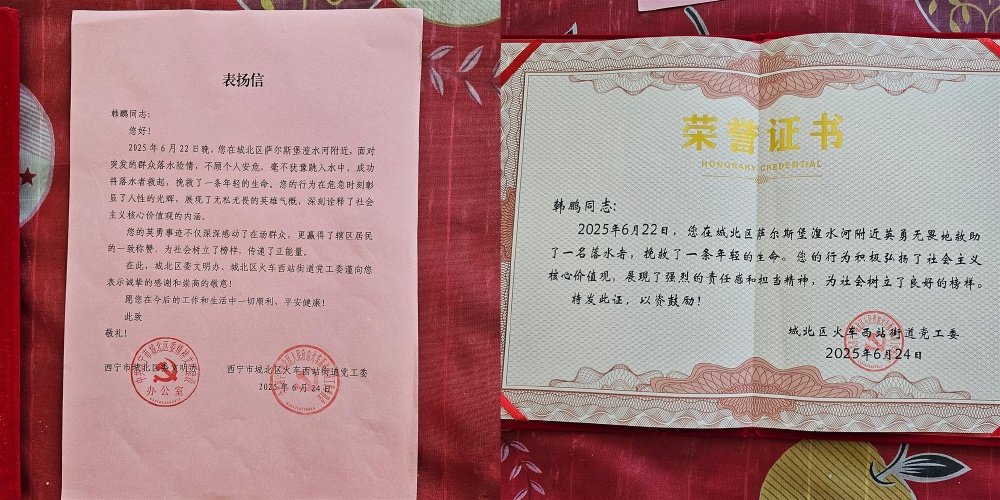 表扬信
韩鹏同志：
您好！
2025年6月22日晚，您在城北区萨尔斯堡湟水河附近，面对
突发的群众落水险情，不顾个人安危，毫不犹豫跳入水中，成功
将落水者救起，挽救了一条年轻的生命。您的行为在危急时刻彰
显了人性的光辉，展现了无私无畏的英雄气概，深刻诠释了社会
主义核心价值观的内涵。
您的英勇事迹不仅深深感动了在场群众，更赢得了辖区居民
的一致称赞，为社会树立了榜样，传递了正能量。
在此，城北区委文明办、城北区火车西站街道党工委谨向您
表示诚挚的感谢和崇高的敬意！
愿您在今后的工作和生活中一切顺利、平安健康！
此致
敬礼！
西宁市城北区委文明办
西宁市城北区火车西站街道党工委
2025年6月24日
办公室
荣誉证书
HONORARY CREDENTIAL
韩鹏同志：
2025年6月22日，您在城北区萨尔斯堡湟水河附近英勇无畏地救助
了一名落水者，挽救了一条年轻的生命。您的行为积极弘扬了社会主义
核心价值观，展现了强烈的责任感和担当精神，为社会树立了良好的榜样。
特发此证，以资鼓励！
城北区火车西站街道党工委
2025年6月24日